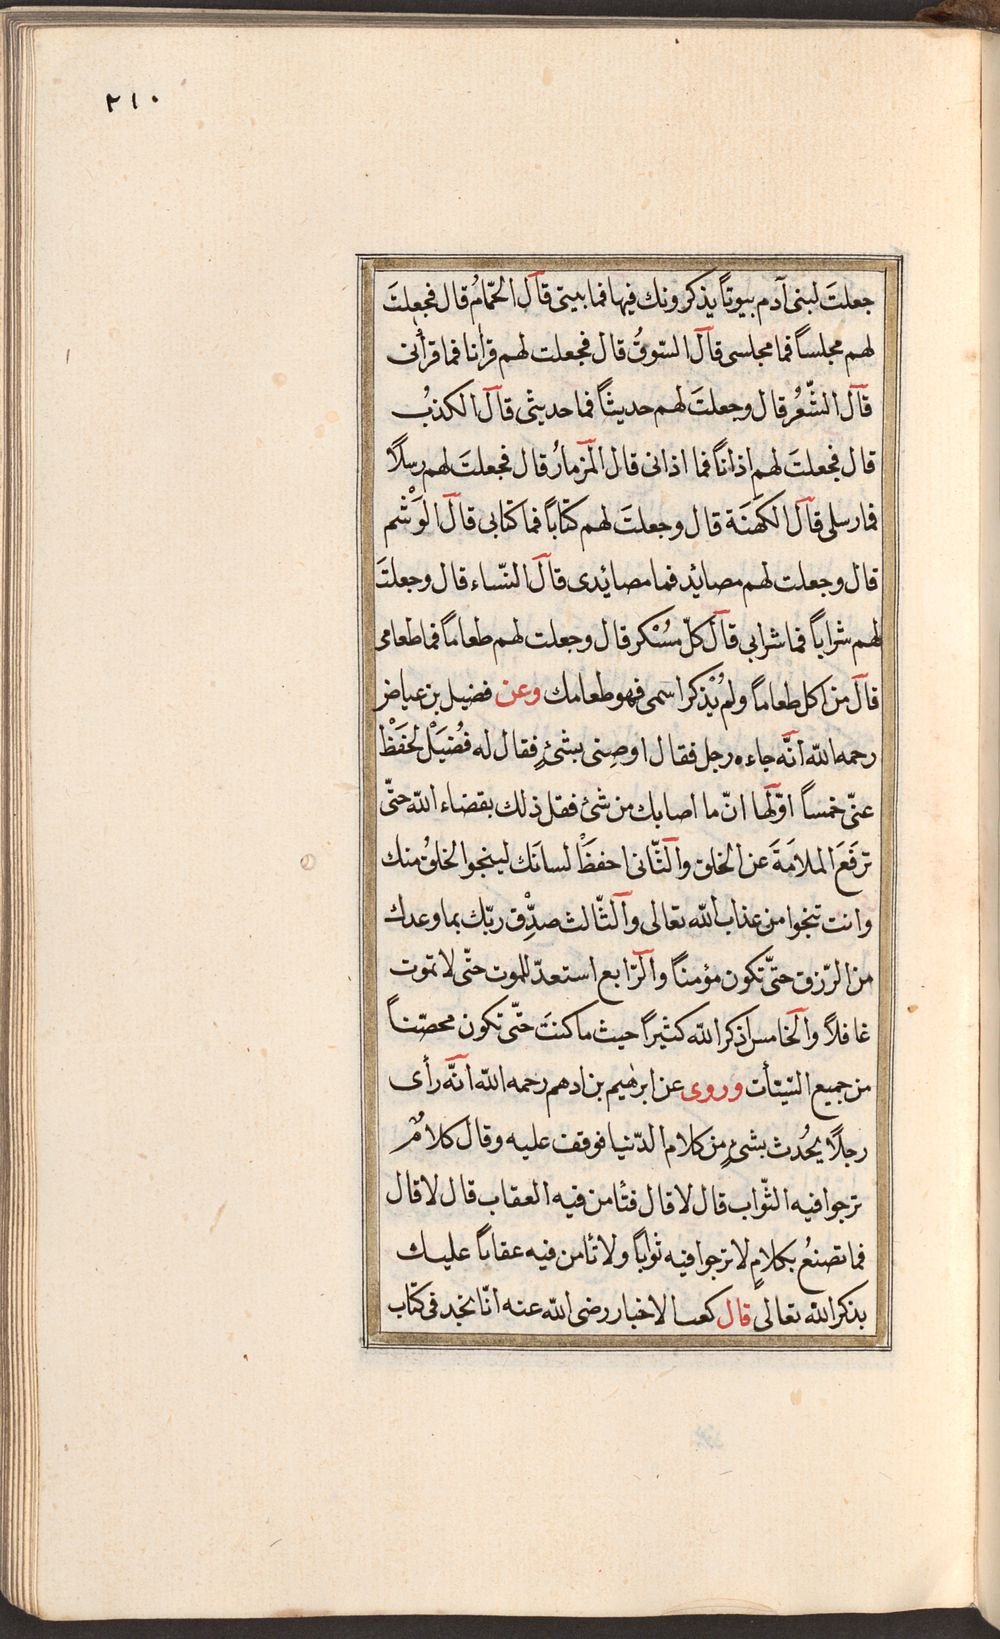 ٢١٠
جعلتَ لبنى آدم بيوتاً يذكرونك فيها فما بيتى قال الحمّامُ قال فجعلتَ
لهم مجلساً فما مجلسى قال السّوقُ قال فجعلت لهم قرانا فما قرأنى
قال الشّعُر قال وجعلتَ لهم حديثاً فما حديثى قال الكذبُ
قال فجعلتَ لهم اذاناً فما اذانى قال المزمارُ قال فجعلتَ لهم رسلاً
فما رسلى قال الكهَنَة قال وجعلتَ لهم كتاباً فما كتابى قال الوَشْم
قال وجعلت لهم مصائد فما مصائدى قال النّساء قال وجعلتَ
لهم شراباً فما شرابى قال كلّ مُسْكر قال وجعلت لهم طعاماً فما طعامى
قال من اكل طعاماً ولم يُذكر اسمى فهو طعامك وعن فضيل بن عياض
رحمه الله انّه جاءه رجل فقال اوصِنى بشئٍ فقال له فُضَيْل احفَظْ
عنّى خمساً اوّلها انّ ما اصابك من شئ فقل ذلك بقضاء الله حتّى
ترفَعَ الملامَةَ عن الخلق والثّانى احفظْ لسانَك لينجوا الخلقُ منك
وانت تنجوا من عذاب الله تعالى والثّالث صدِّقْ ربّك بما وعدك
من الرّزق حتّى تكون مؤمناً والرّابع استعدّ للموت حتّى لا تموت
غافلاً والخامس اذكر الله كثيراً حيث ما كنتَ حتّى تكون محصّناً
من جميع السّيّئات وروى عن ابرهيم بن ادهم رحمه الله انّه رأى
رجلاً يحُدث بشئٍ من كلام الدّنيا فوقف عليه وقال كلامٌ
ترجوا فيه الثّواب قال لا قال فتأمن فيه العقاب قال لا قال
فما تصنعُ بكلامٍ لا ترجوا فيه ثواباً ولا تأمن فيه عقاباً عليك
بذكر الله تعالى قال كعب الاخبار رضى الله عنه انّا نجد فى كتاب